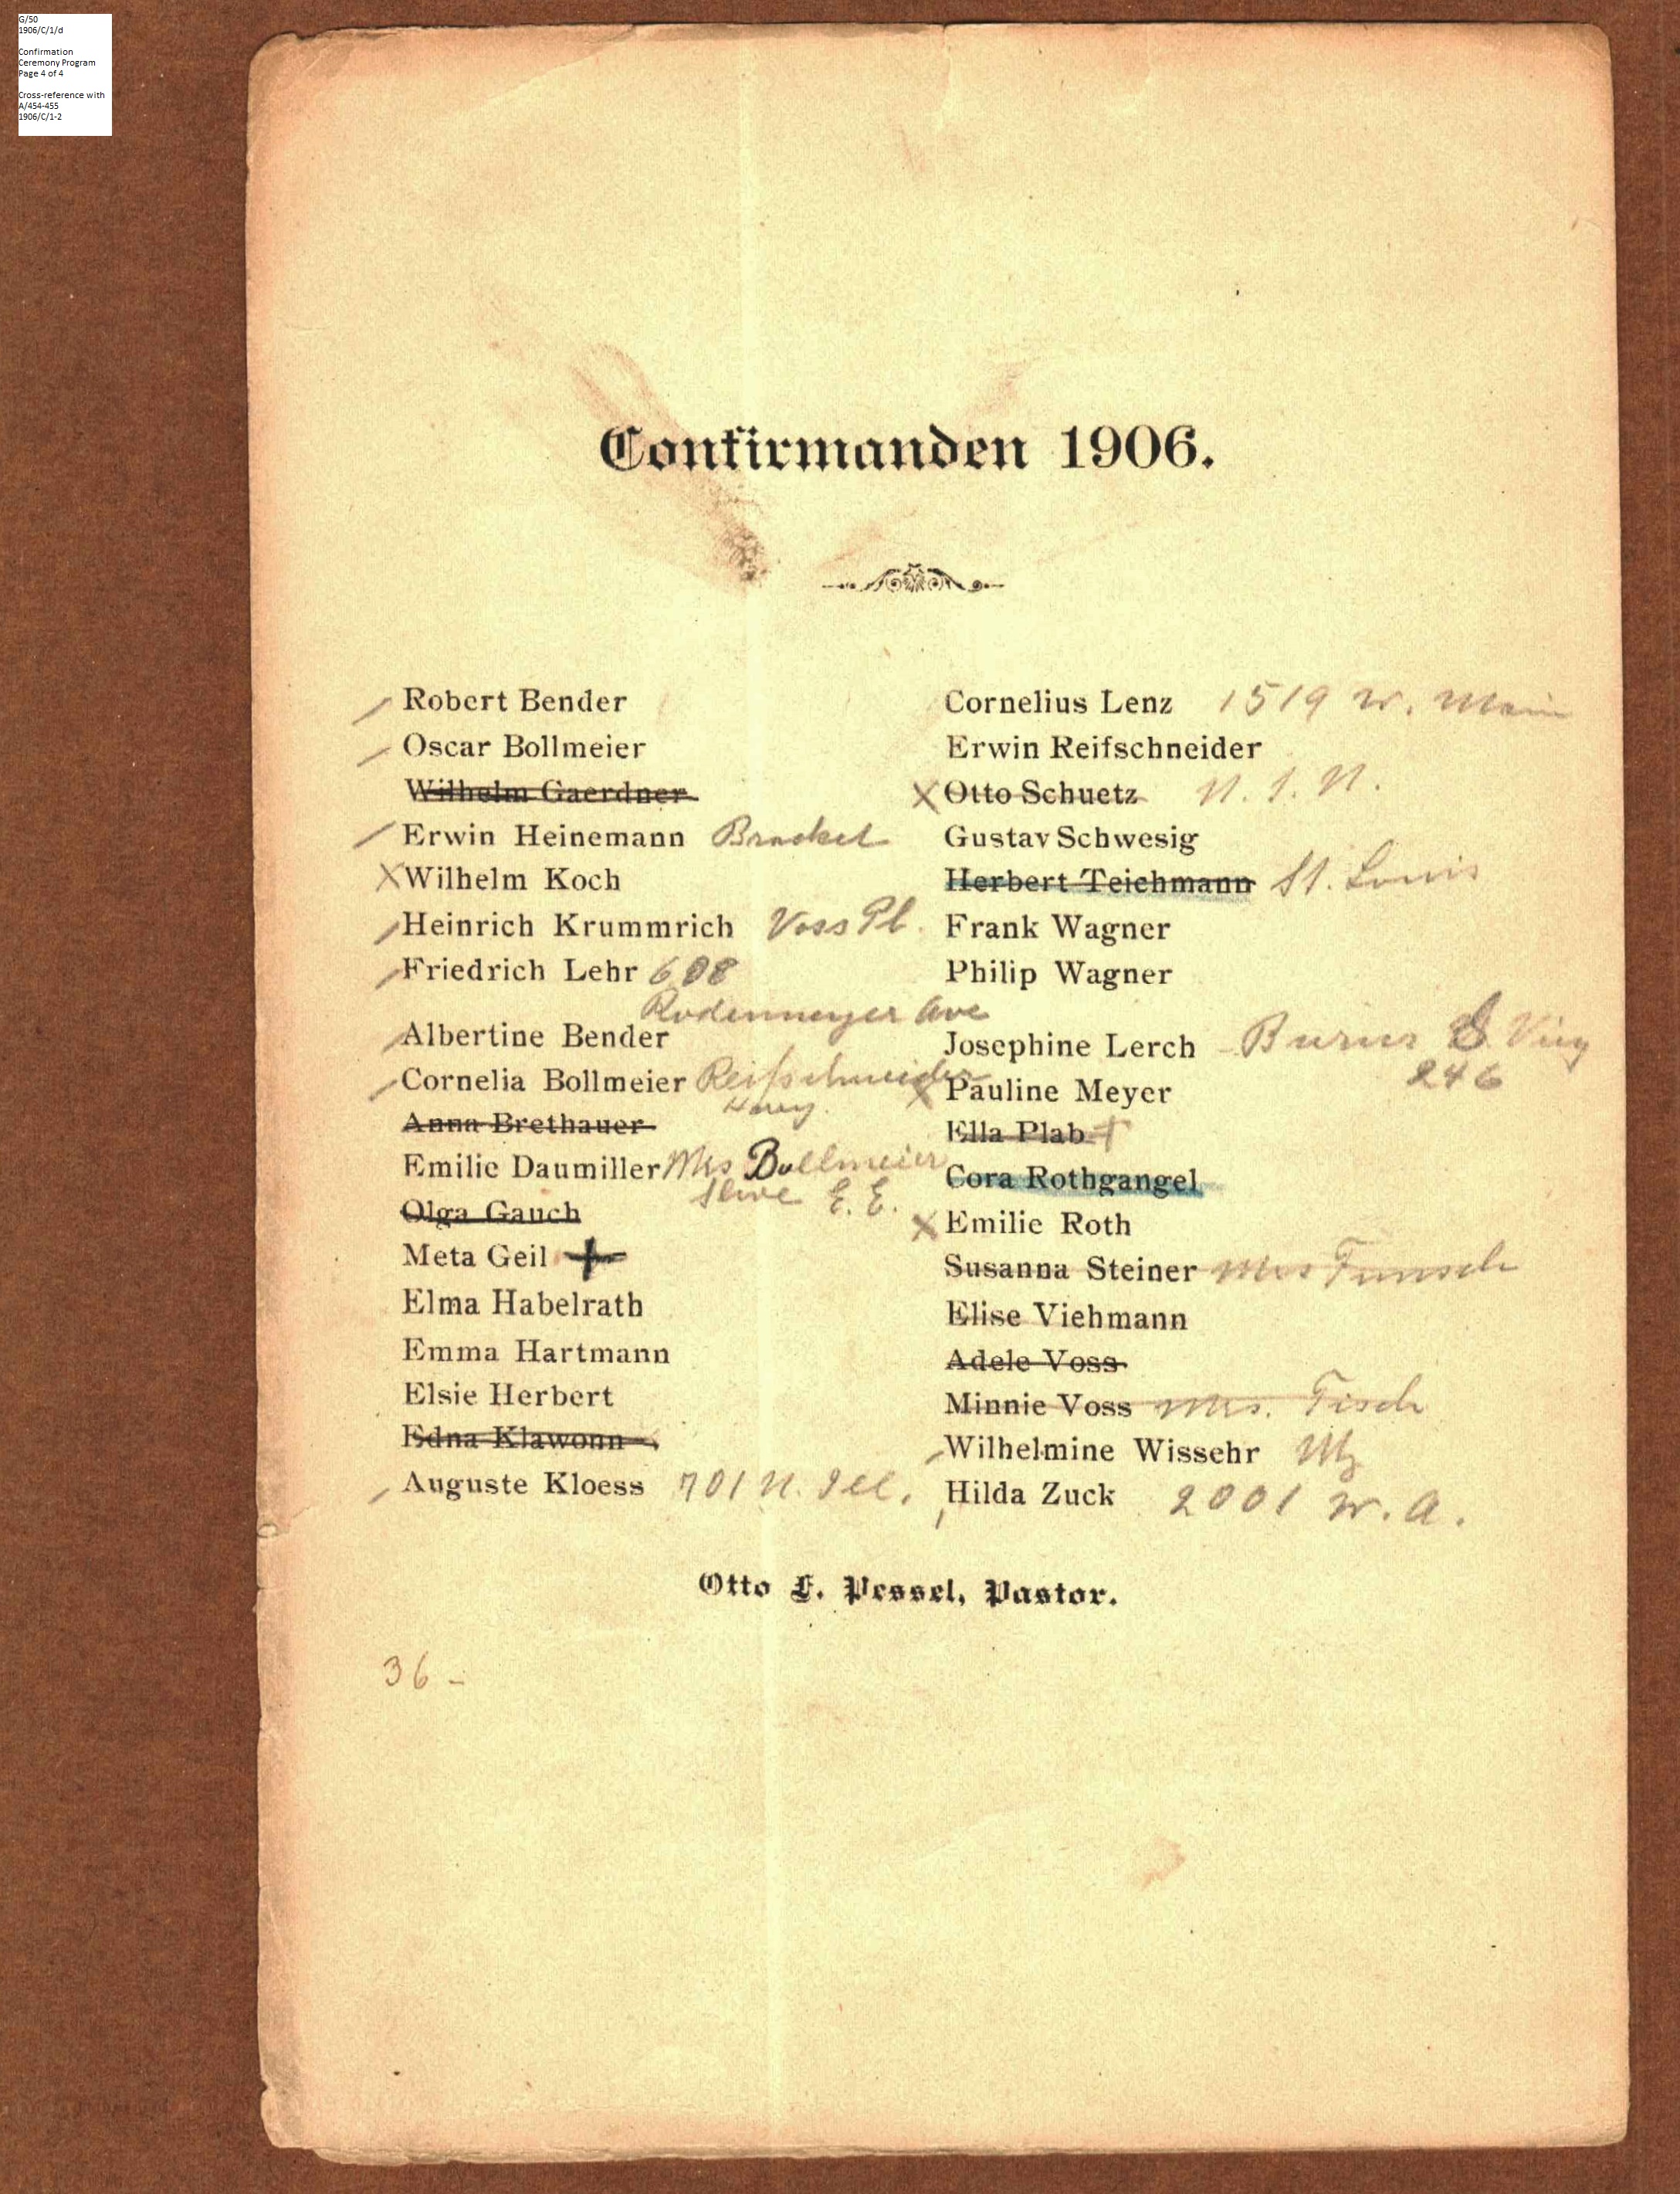 G/50
1906/C/1/d
Confirmation
Ceremony Program
Page 4 of 4
Cross-reference with
A/454-455
1906/C/1-2
Confirmanden 1906.
Robert Bender
Oscar Bollmeier
Wilhelm Gaerdner
Erwin Heinemann
Wilhelm Koch
Heinrich Krummrich Voss Pl.
Friedrich Lehr 608
Rodenmeyer Ave
Albertine Bender
Cornelia Bollmeier Reifschneider
Anna Brethauer
Emilie Daumiller Mrs Bollmeier
E. E.
Olga Gauch
Meta Geil
Elma Habelrath
Emma Hartmann
Elsie Herbert
Edna Klawonn
Auguste Kloess 701 N. Ill.
Cornelius Lenz 1519 W. Main
Erwin Reifschneider
Otto Schuetz
Gustav Schwesig
Herbert Teichmann St. Louis
Frank Wagner
Philip Wagner
Josephine Lerch Burns
246
Pauline Meyer
Ella Plab
Cora Rothgangel
Emilie Roth
Susanna Steiner Mrs
Elise Viehmann
Adele Voss
Minnie Voss Mrs. Tisch
Wilhelmine Wissehr
Hilda Zuck 2001 W. A.
Otto F. Pessel, Pastor.
36 -